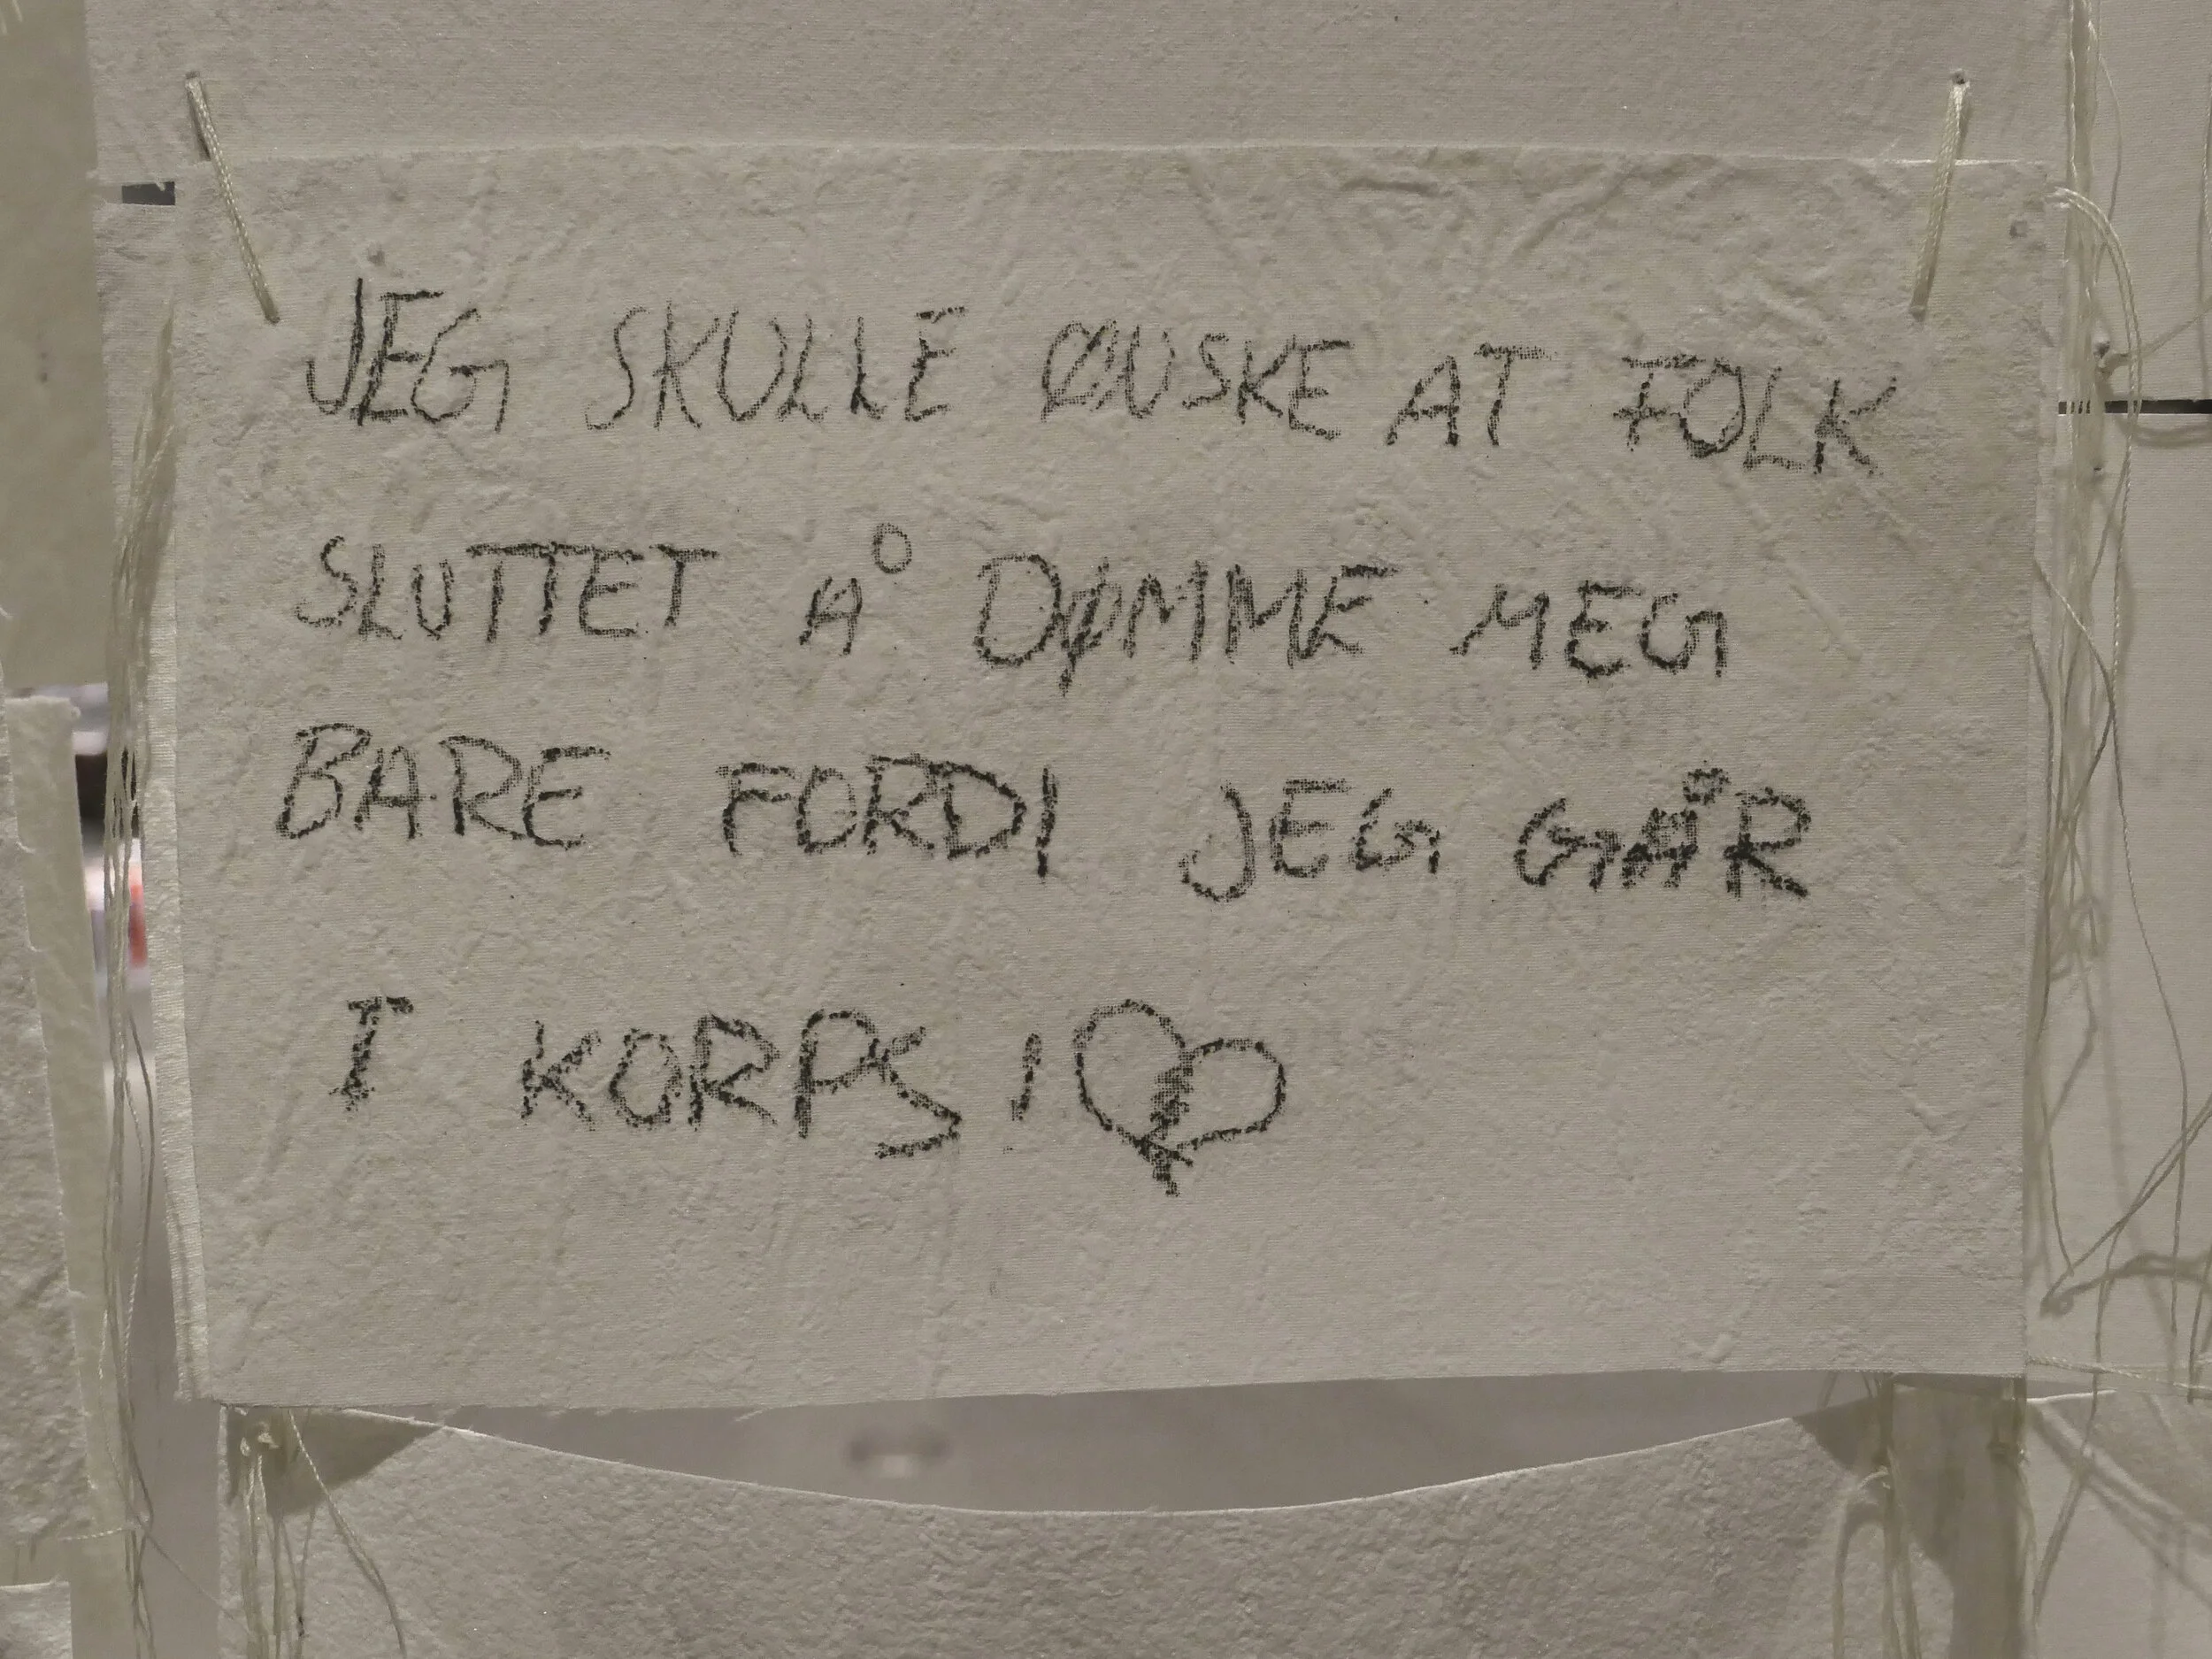 JEG SKULLE ØNSKE AT FOLK
SLUTTET Å DØMME MEG
BARE FORDI JEG GÅR
I KORPS!